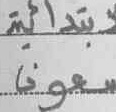 لابتدائية
سعونا